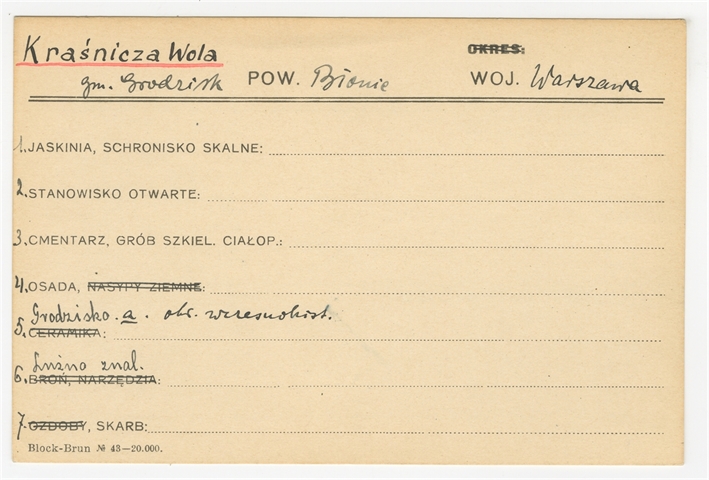 Kraśnicza Wola
OKRES:
gm. Grodzisk POW. Błonie WOJ. Warszawa
1. JASKINIA, SCHRONISKO SKALNE:
2. STANOWISKO OTWARTE:
3. CMENTARZ, GRÓB SZKIEL. CIAŁOP.:
4. OSADA, NASYPY ZIEMNE:
Grodzisko. a. okr. wczesnohist.
5. CERAMIKA:
Luźno znal.
6. BROŃ, NARZĘDZIA:
7. OZDOBY, SKARB:
Block-Brun № 43—20.000.